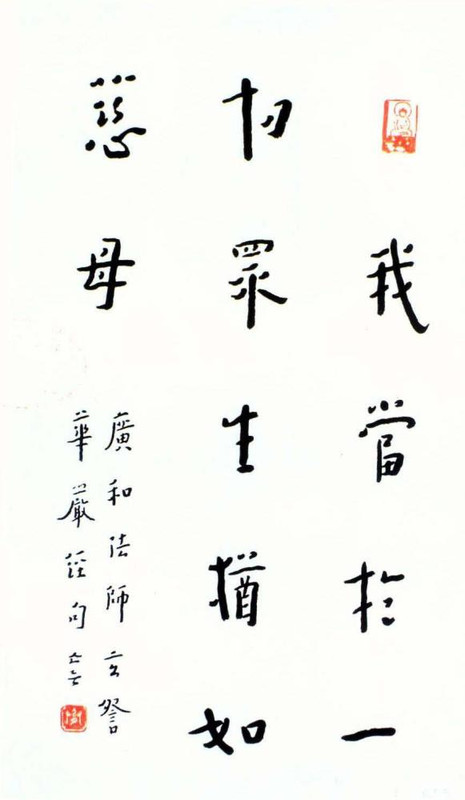 我當於一
切眾生猶如
慈母
廣和法師玄詧
華嚴經句 善